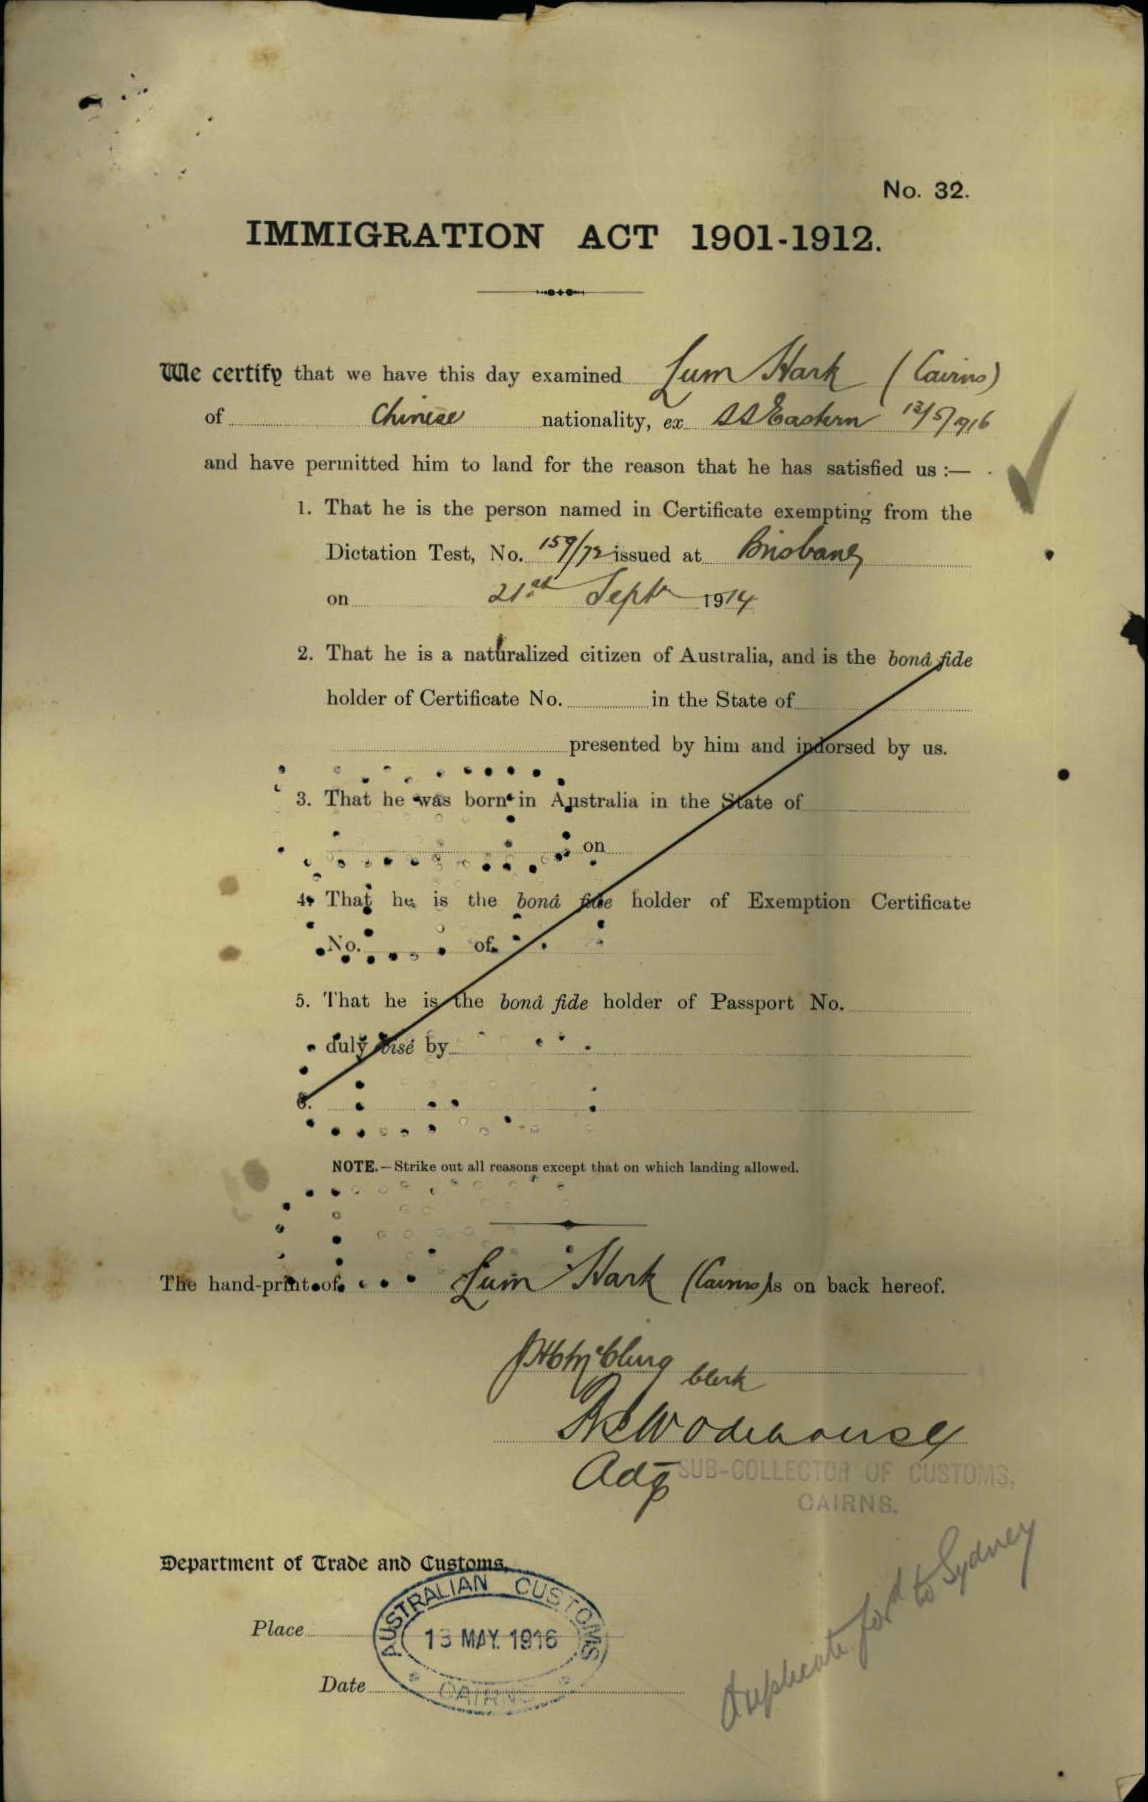 No. 32.
IMMIGRATION ACT 1901-1912.
We certify that we have this day examined Lum Hark (Cairns)
of Chinese nationality, ex SS Eastern 13/5/1916
and have permitted him to land for the reason that he has satisfied us :—
1. That he is the person named in Certificate exempting from the
Dictation Test, No. 159/72 issued at Brisbane
on 21st Septr 1914
2. That he is a naturalized citizen of Australia, and is the bonâ fide
holder of Certificate No. in the State of
presented by him and indorsed by us.
3. That he was born in Australia in the State of
on
4. That he is the bonâ fide holder of Exemption Certificate
No. of
5. That he is the bonâ fide holder of Passport No.
duly visé by
6.
NOTE.—Strike out all reasons except that on which landing allowed.
The hand-print of Lum Hark (Cairns) is on back hereof.
McClurg Clerk
Wodehouse
Actg SUB-COLLECTOR OF CUSTOMS,
CAIRNS.
Department of Trade and Customs,
AUSTRALIAN CUSTOMS
Place 13 MAY. 1916
Date CAIRNS
Duplicate ford to Sydney